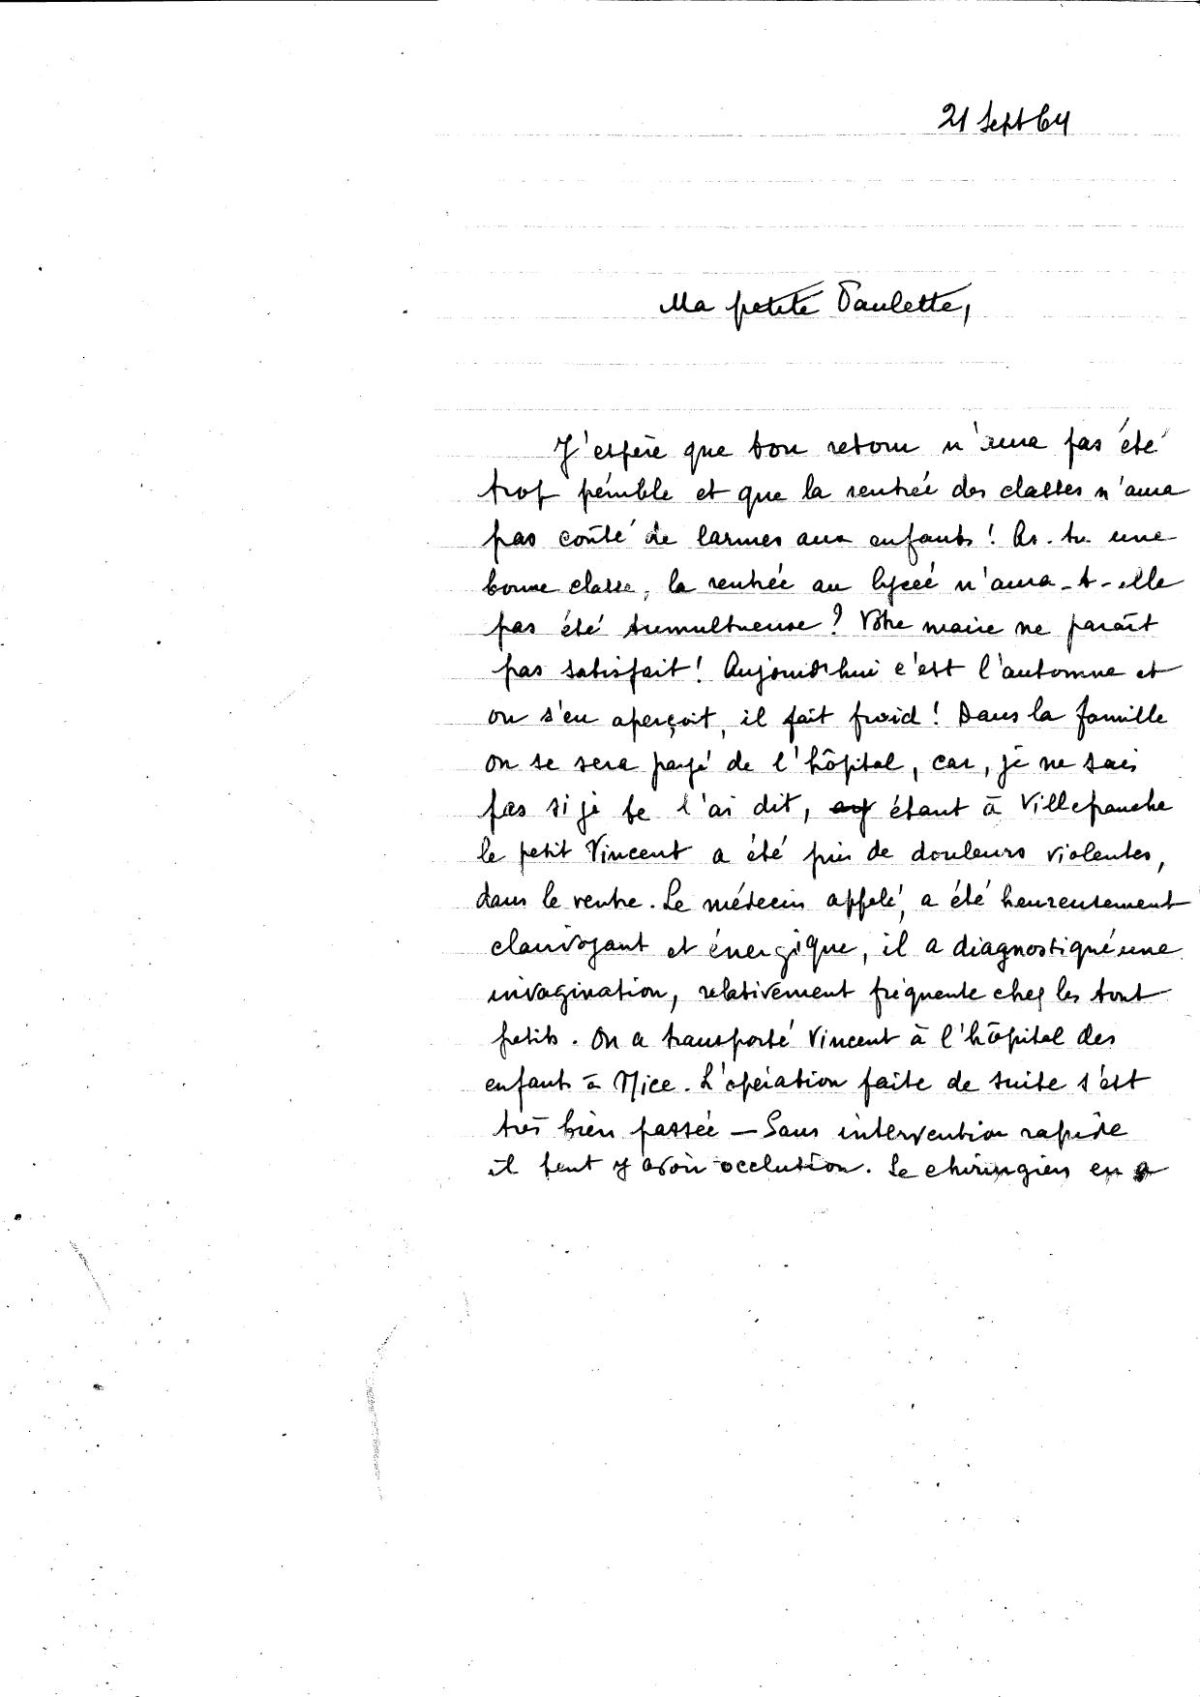 21 Sept 64
Ma petite Paulette,
J'espère que ton retour n'aura pas été
trop pénible et que la rentrée des classes n'aura
pas coûté de larmes aux enfants ! As-tu une
bonne classe, la rentrée au lycée n'aura-t-elle
pas été tumultueuse ? Votre maire ne paraît
pas satisfait ! Aujourd'hui c'est l'automne et
on s'en aperçoit, il fait froid ! Dans la famille
on se sera payé de l'hôpital, car, je ne sais
pas si je te l'ai dit, étant à Villefranche
le petit Vincent a été pris de douleurs violentes,
dans le ventre. Le médecin appelé, a été heureusement
clairvoyant et énergique, il a diagnostiqué une
invagination, relativement fréquente chez les tout
petits. On a transporté Vincent à l'hôpital des
enfants à Nice. L'opération faite de suite s'est
très bien passée — Sans intervention rapide
il peut y avoir occlusion. Le chirurgien en a